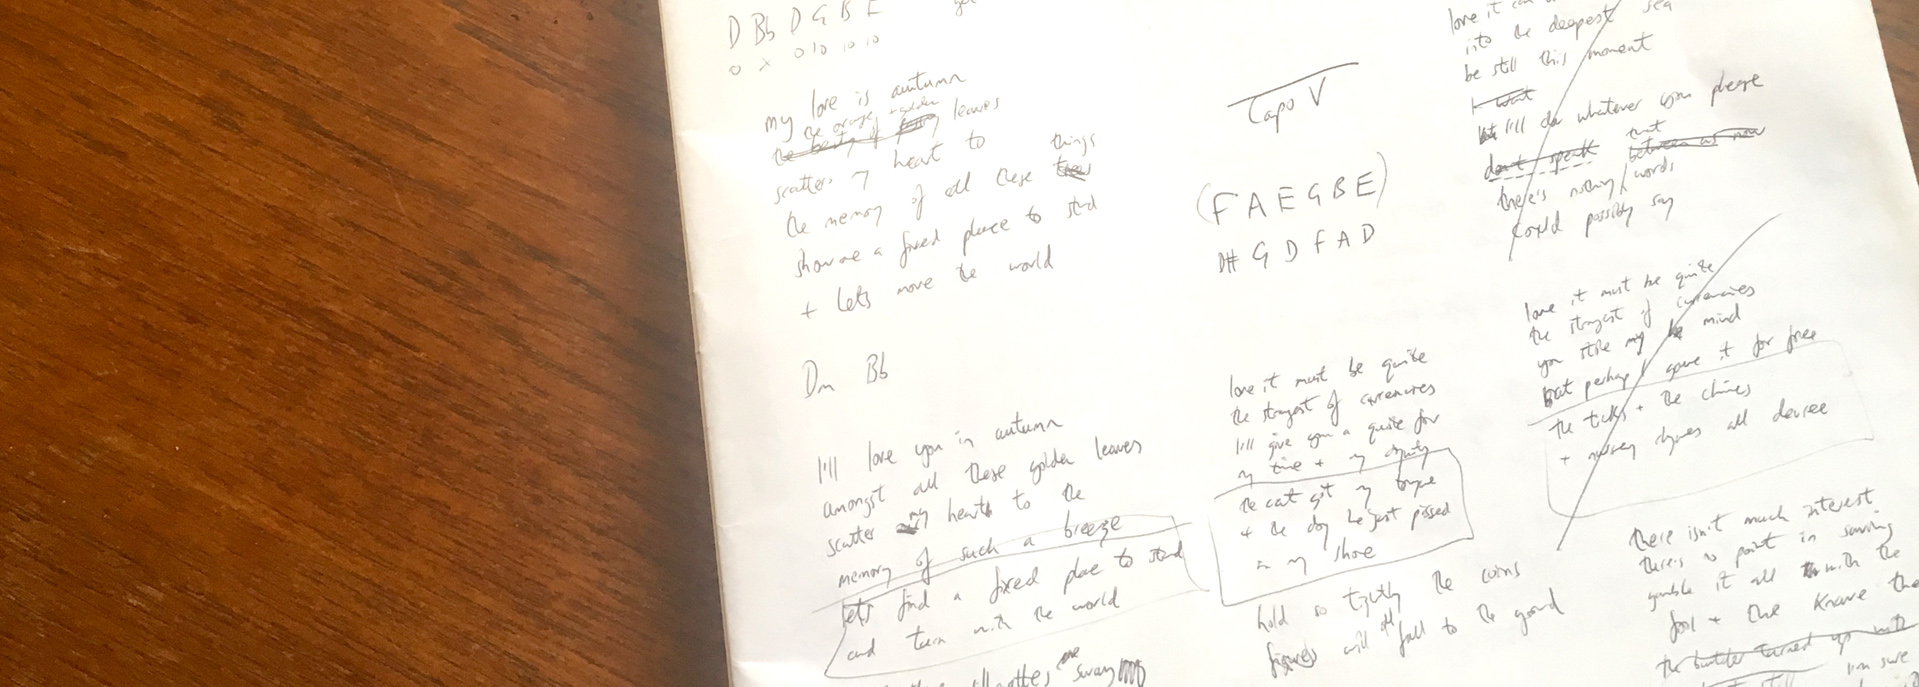 D Bb D G B E
0 x 0 10 10 10
my love is autumn
the orange + golden
the beauty of leaves
scatters my heart to things
the memory of all these trees
show me a fixed place to stand
+ lets move the world
Dm Bb
I'll love you in autumn
amongst all these golden leaves
scatter my hearts to the
memory of such a breeze
lets find a fixed place to stand
and turn with the world
sway
Capo V
(F A E G B E)
D# G D F A D
love it must be quite
the strangest of currencies
I'll give you a quite for
my time + my dignity
the cat got my tongue
+ the dog he just pissed
in my shoe
hold so tightly the coins
figures will all fall to the ground
love it can
into the deepest sea
be still this moment
I want
but I'll do whatever you please
dont speak between us now
that
there's nothing words
could possibly say
love it must be quite
the strangest of currencies
you stole my mind
but perhaps I gave it for free
the ticks + the chimes
+ nursery rhymes all decree
there isn't much interest
there's no point in saving
gamble it all with the
fool + the knave the
the turned up with
I'm sure